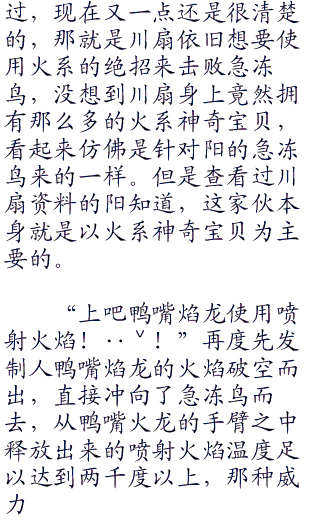 过，现在又一点还是很清楚
的，那就是川扇依旧想要使
用火系的绝招来击败急冻
鸟，没想到川扇身上竟然拥
有那么多的火系神奇宝贝，
看起来仿佛是针对阳的急冻
鸟来的一样。但是查看过川
扇资料的阳知道，这家伙本
身就是以火系神奇宝贝为主
要的。
“上吧鸭嘴焰龙使用喷
射火焰！··ˇ！”再度先发
制人鸭嘴焰龙的火焰破空而
出，直接冲向了急冻鸟而
去，从鸭嘴火龙的手臂之中
释放出来的喷射火焰温度足
以达到两千度以上，那种威
力